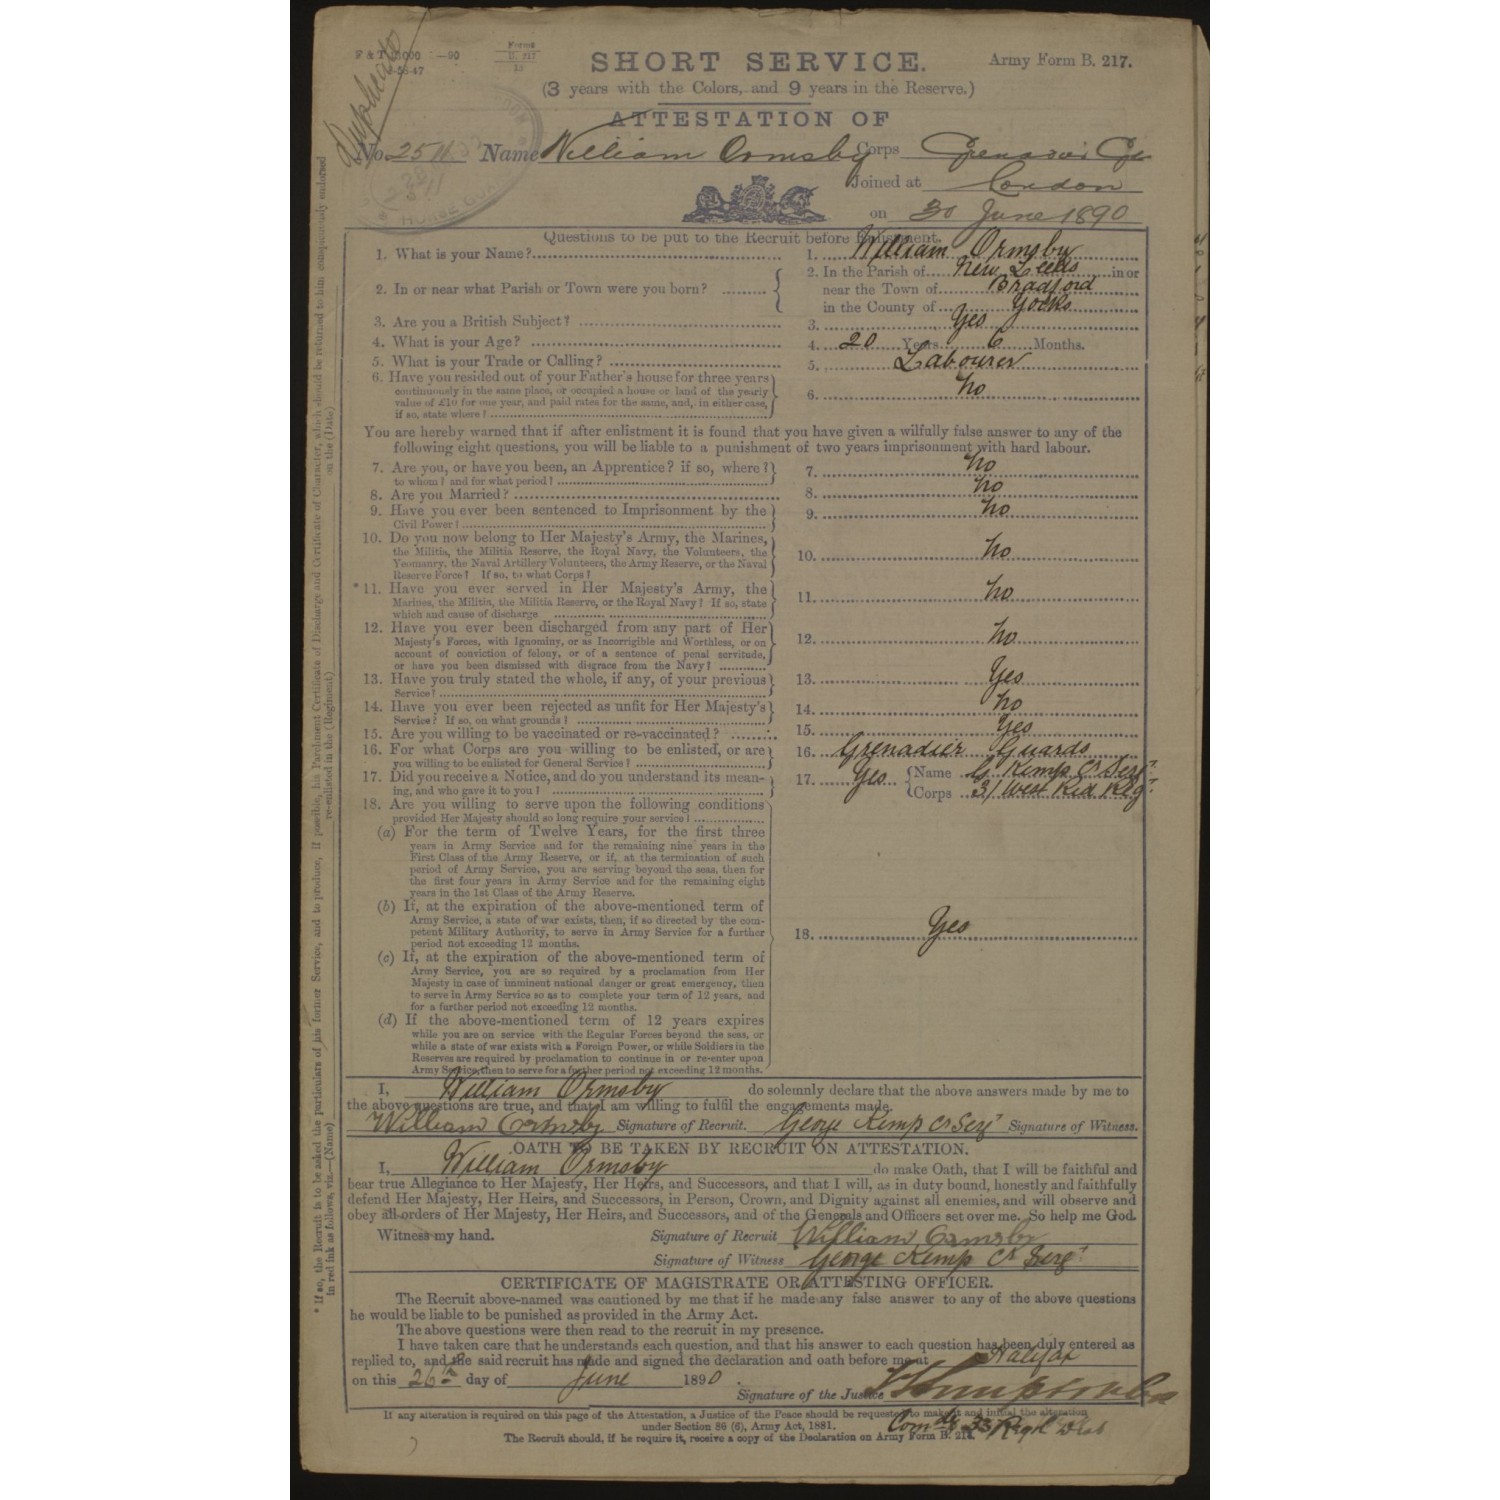 Duplicate
Forms
B. 217
SHORT SERVICE.
Army Form B. 217.
(3 years with the Colors, and 9 years in the Reserve.)
ATTESTATION OF
No. 2511 Name William Ormsby Corps Grenadier Gds
Joined at London
on 30 June 1890
Questions to be put to the Recruit before Enlistment.
1. What is your Name? 1. William Ormsby
2. In or near what Parish or Town were you born? 2. In the Parish of New Leeds in or
near the Town of Bradford
in the County of Yorks
3. Are you a British Subject? 3. Yes
4. What is your Age? 4. 20 Years 6 Months.
5. What is your Trade or Calling? 5. Labourer
6. Have you resided out of your Father's house for three years
continuously in the same place, or occupied a house or land of the yearly
value of £10 for one year, and paid rates for the same, and, in either case,
if so, state where? 6. No
You are hereby warned that if after enlistment it is found that you have given a wilfully false answer to any of the
following eight questions, you will be liable to a punishment of two years imprisonment with hard labour.
7. Are you, or have you been, an Apprentice? if so, where?
to whom? and for what period? 7. No
8. Are you Married? 8. No
9. Have you ever been sentenced to Imprisonment by the
Civil Power? 9. No
10. Do you now belong to Her Majesty's Army, the Marines,
the Militia, the Militia Reserve, the Royal Navy, the Volunteers, the
Yeomanry, the Naval Artillery Volunteers, the Army Reserve, or the Naval
Reserve Force? If so, to what Corps? 10. No
* 11. Have you ever served in Her Majesty's Army, the
Marines, the Militia, the Militia Reserve, or the Royal Navy? If so, state
which and cause of discharge 11. No
12. Have you ever been discharged from any part of Her
Majesty's Forces, with Ignominy, or as Incorrigible and Worthless, or on
account of conviction of felony, or of a sentence of penal servitude,
or have you been dismissed with disgrace from the Navy? 12. No
13. Have you truly stated the whole, if any, of your previous
Service? 13. Yes
14. Have you ever been rejected as unfit for Her Majesty's
Service? If so, on what grounds? 14. No
15. Are you willing to be vaccinated or re-vaccinated? 15. Yes
16. For what Corps are you willing to be enlisted, or are
you willing to be enlisted for General Service? 16. Grenadier Guards
17. Did you receive a Notice, and do you understand its mean-
ing, and who gave it to you? 17. Yes Name G Kemp Cr Sergt
Corps 3/ West Rid Reg
18. Are you willing to serve upon the following conditions
provided Her Majesty should so long require your service?
(a) For the term of Twelve Years, for the first three
years in Army Service and for the remaining nine years in the
First Class of the Army Reserve, or if, at the termination of such
period of Army Service, you are serving beyond the seas, then for
the first four years in Army Service and for the remaining eight
years in the 1st Class of the Army Reserve.
(b) If, at the expiration of the above-mentioned term of
Army Service, a state of war exists, then, if so directed by the com-
petent Military Authority, to serve in Army Service for a further
period not exceeding 12 months.
18. Yes
(c) If, at the expiration of the above-mentioned term of
Army Service, you are so required by a proclamation from Her
Majesty in case of imminent national danger or great emergency, then
to serve in Army Service so as to complete your term of 12 years, and
for a further period not exceeding 12 months.
(d) If the above-mentioned term of 12 years expires
while you are on service with the Regular Forces beyond the seas, or
while a state of war exists with a Foreign Power, or while Soldiers in the
Reserves are required by proclamation to continue in or re-enter upon
Army Service, then to serve for a further period not exceeding 12 months.
I, William Ormsby do solemnly declare that the above answers made by me to
the above questions are true, and that I am willing to fulfil the engagements made.
William Ormsby Signature of Recruit. George Kemp Cr Sergt Signature of Witness.
OATH TO BE TAKEN BY RECRUIT ON ATTESTATION.
I, William Ormsby do make Oath, that I will be faithful and
bear true Allegiance to Her Majesty, Her Heirs, and Successors, and that I will, as in duty bound, honestly and faithfully
defend Her Majesty, Her Heirs, and Successors, in Person, Crown, and Dignity against all enemies, and will observe and
obey all orders of Her Majesty, Her Heirs, and Successors, and of the Generals and Officers set over me. So help me God.
Witness my hand. Signature of Recruit William Ormsby
Signature of Witness George Kemp Cr Sergt
CERTIFICATE OF MAGISTRATE OR ATTESTING OFFICER.
The Recruit above-named was cautioned by me that if he made any false answer to any of the above questions
he would be liable to be punished as provided in the Army Act.
The above questions were then read to the recruit in my presence.
I have taken care that he understands each question, and that his answer to each question has been duly entered as
replied to, and the said recruit has made and signed the declaration and oath before me at Halifax
on this 26th day of June 1890.
Signature of the Justice
If any alteration is required on this page of the Attestation, a Justice of the Peace should be requested to make it and initial the alteration
under Section 80 (6), Army Act, 1881.
Comdg 33 Regtl Dist
The Recruit should, if he require it, receive a copy of the Declaration on Army Form B. 217.
* If so, the Recruit is to be asked the particulars of his former Service, and to produce, if possible, his Parchment Certificate of Discharge and Certificate of Character, which should be returned to him conspicuously endorsed
in red ink as follows, viz.—(Name) re-enlisted in the (Regiment) on the (Date)